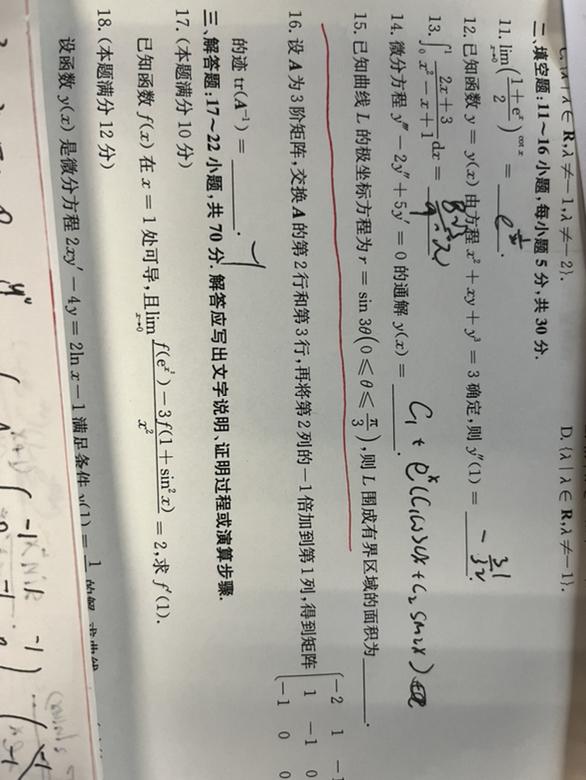 C.{λ | λ ∈ R,λ ≠ −1,λ ≠ −2}. D.{λ | λ ∈ R,λ ≠ −1}.
二、填空题:11~16小题,每小题5分,共30分.
11. lim_{x→0}((1+e^x)/2)^{cot x} = ______. e^{1/2}
12. 已知函数 y = y(x) 由方程 x² + xy + y³ = 3 确定,则 y″(1) = ______. −31/32
13. ∫_0^1 (2x+3)/(x²−x+1) dx = ______.
14. 微分方程 y‴ − 2y″ + 5y′ = 0 的通解 y(x) = ______.
C₁ + e^x(C₁cos2x + C₂ sin2x)
15. 已知曲线 L 的极坐标方程为 r = sin 3θ(0 ⩽ θ ⩽ π/3),则 L 围成有界区域的面积为______.
16. 设 A 为3阶矩阵,交换 A 的第2行和第3行,再将第2列的 −1 倍加到第1列,得到矩阵
−2 1 −1
1 −1 0
−1 0 0
的迹 tr(A⁻¹) = ______.
三、解答题:17~22小题,共70分.解答应写出文字说明、证明过程或演算步骤.
17. (本题满分10分)
已知函数 f(x) 在 x = 1 处可导,且 lim_{x→0} (f(e^{x²}) − 3f(1 + sin²x))/x² = 2,求 f′(1).
18. (本题满分12分)
设函数 y(x) 是微分方程 2xy′ − 4y = 2ln x − 1 满足条件 y(1) =